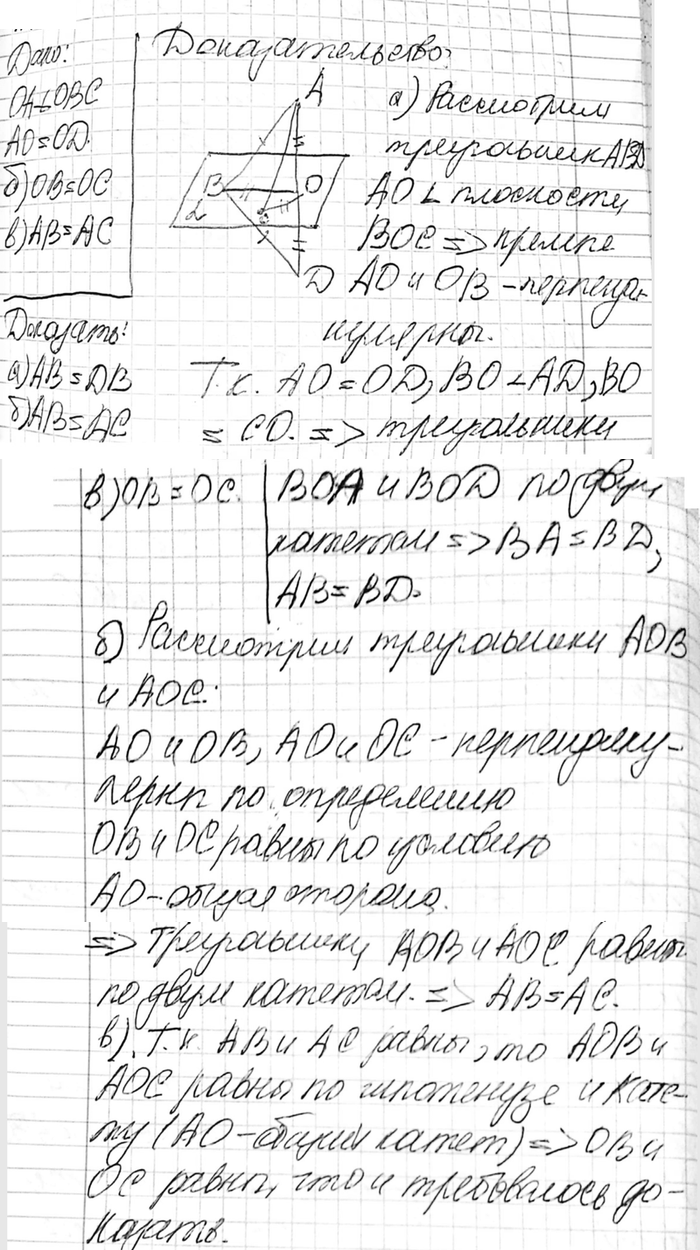 Дано:
OA⊥OBC
AO=OD.
б) OB=OC
в) AB=AC
Доказать:
а) AB=DB
б) AB=AC
в) OB=OC.
Доказательство:
A
B
O
α
D
а) Рассмотрим
треугольник ABD
AO ⊥ плоскости
BOC => прямые
AO и OB - перпенди-
кулярны.
Т.к. AO=OD, BO⊥AD, BO
= CO. => треугольники
BOA и BOD по двум
катетам => BA=BD,
AB=BD.
б) Рассмотрим треугольники AOB
и AOC:
AO и OB, AO и OC - перпендику-
лярны по определению
OB и OC равны по условию
AO - общая сторона.
=> треугольники AOB и AOC равны
по двум катетам. => AB=AC.
в). Т.к. AB и AC равны, то AOB и
AOC равны по гипотенузе и кате-
ту (AO - общий катет) => OB и
OC равны, что и требовалось до-
казать.